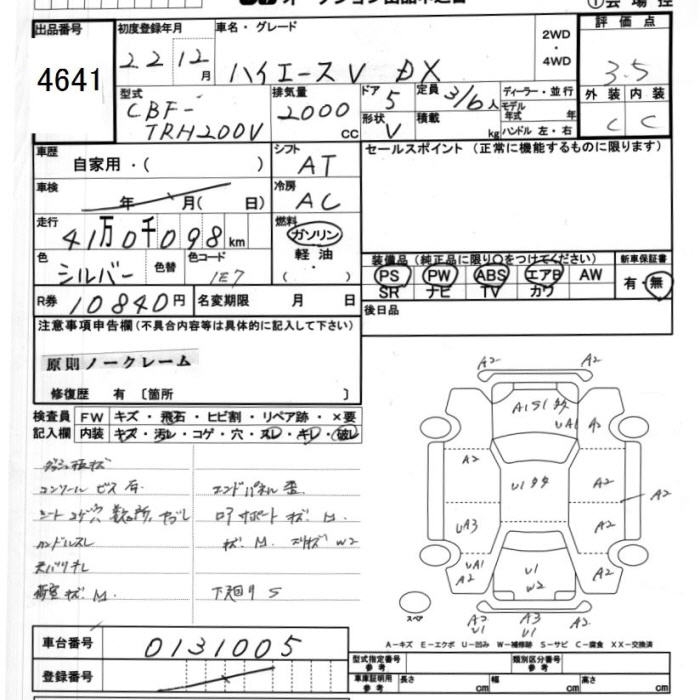 出品番号 初度登録年月 車名・グレード 2WD・4WD 評価点
4641 22 12月 ハイエースV DX 3.5
型式 排気量 ドア 定員 ディーラー・並行 外装 内装
CBF-TRH200V 2000cc 5 3/6人 モデル年式 年 C C
形状 V 積載 kg ハンドル 左・右
車歴 シフト セールスポイント (正常に機能するものに限ります)
自家用・( ) AT
車検 冷房
年 月( 日) AC
走行 燃料
41万0千098km ガソリン
軽油
( )
色 色替 色コード
シルバー 1E7
装備品 (純正品に限り○をつけてください) 新車保証書
PS PW ABS エアB AW 有・無
SR ナビ TV カワ
R券 10840円 名変期限 月 日 後日品
注意事項申告欄 (不具合内容等は具体的に記入して下さい)
原則ノークレーム
修復歴 有 〔箇所 〕
検査員 FW キズ・飛石・ヒビ割・リペア跡・×要
記入欄 内装 キズ・汚レ・コゲ・穴・スレ・キレ・破レ
コンソール ビス有 エンドパネル歪
シート コゲ穴 数ヶ所、ヤブレ ロアサポート キズ M.
ハンドルスレ キズ M. スリキズ W2
天バリキレ
荷室キズ M. 下廻りS
A2 A2
A1S1多 UA1 A2
A2 U1多々 A2
A2
UA3 A2
UA1 A2 U1 W2 A2
スペア A2 U1 A3 U1 A2
A-キズ E-エクボ U-凹み W-補修跡 S-サビ C-腐食 XX-交換済
車台番号 0131005
登録番号
型式指定番号 参考 類別区分番号 参考
車庫証明用 参考 長さ cm 幅 cm 高さ cm